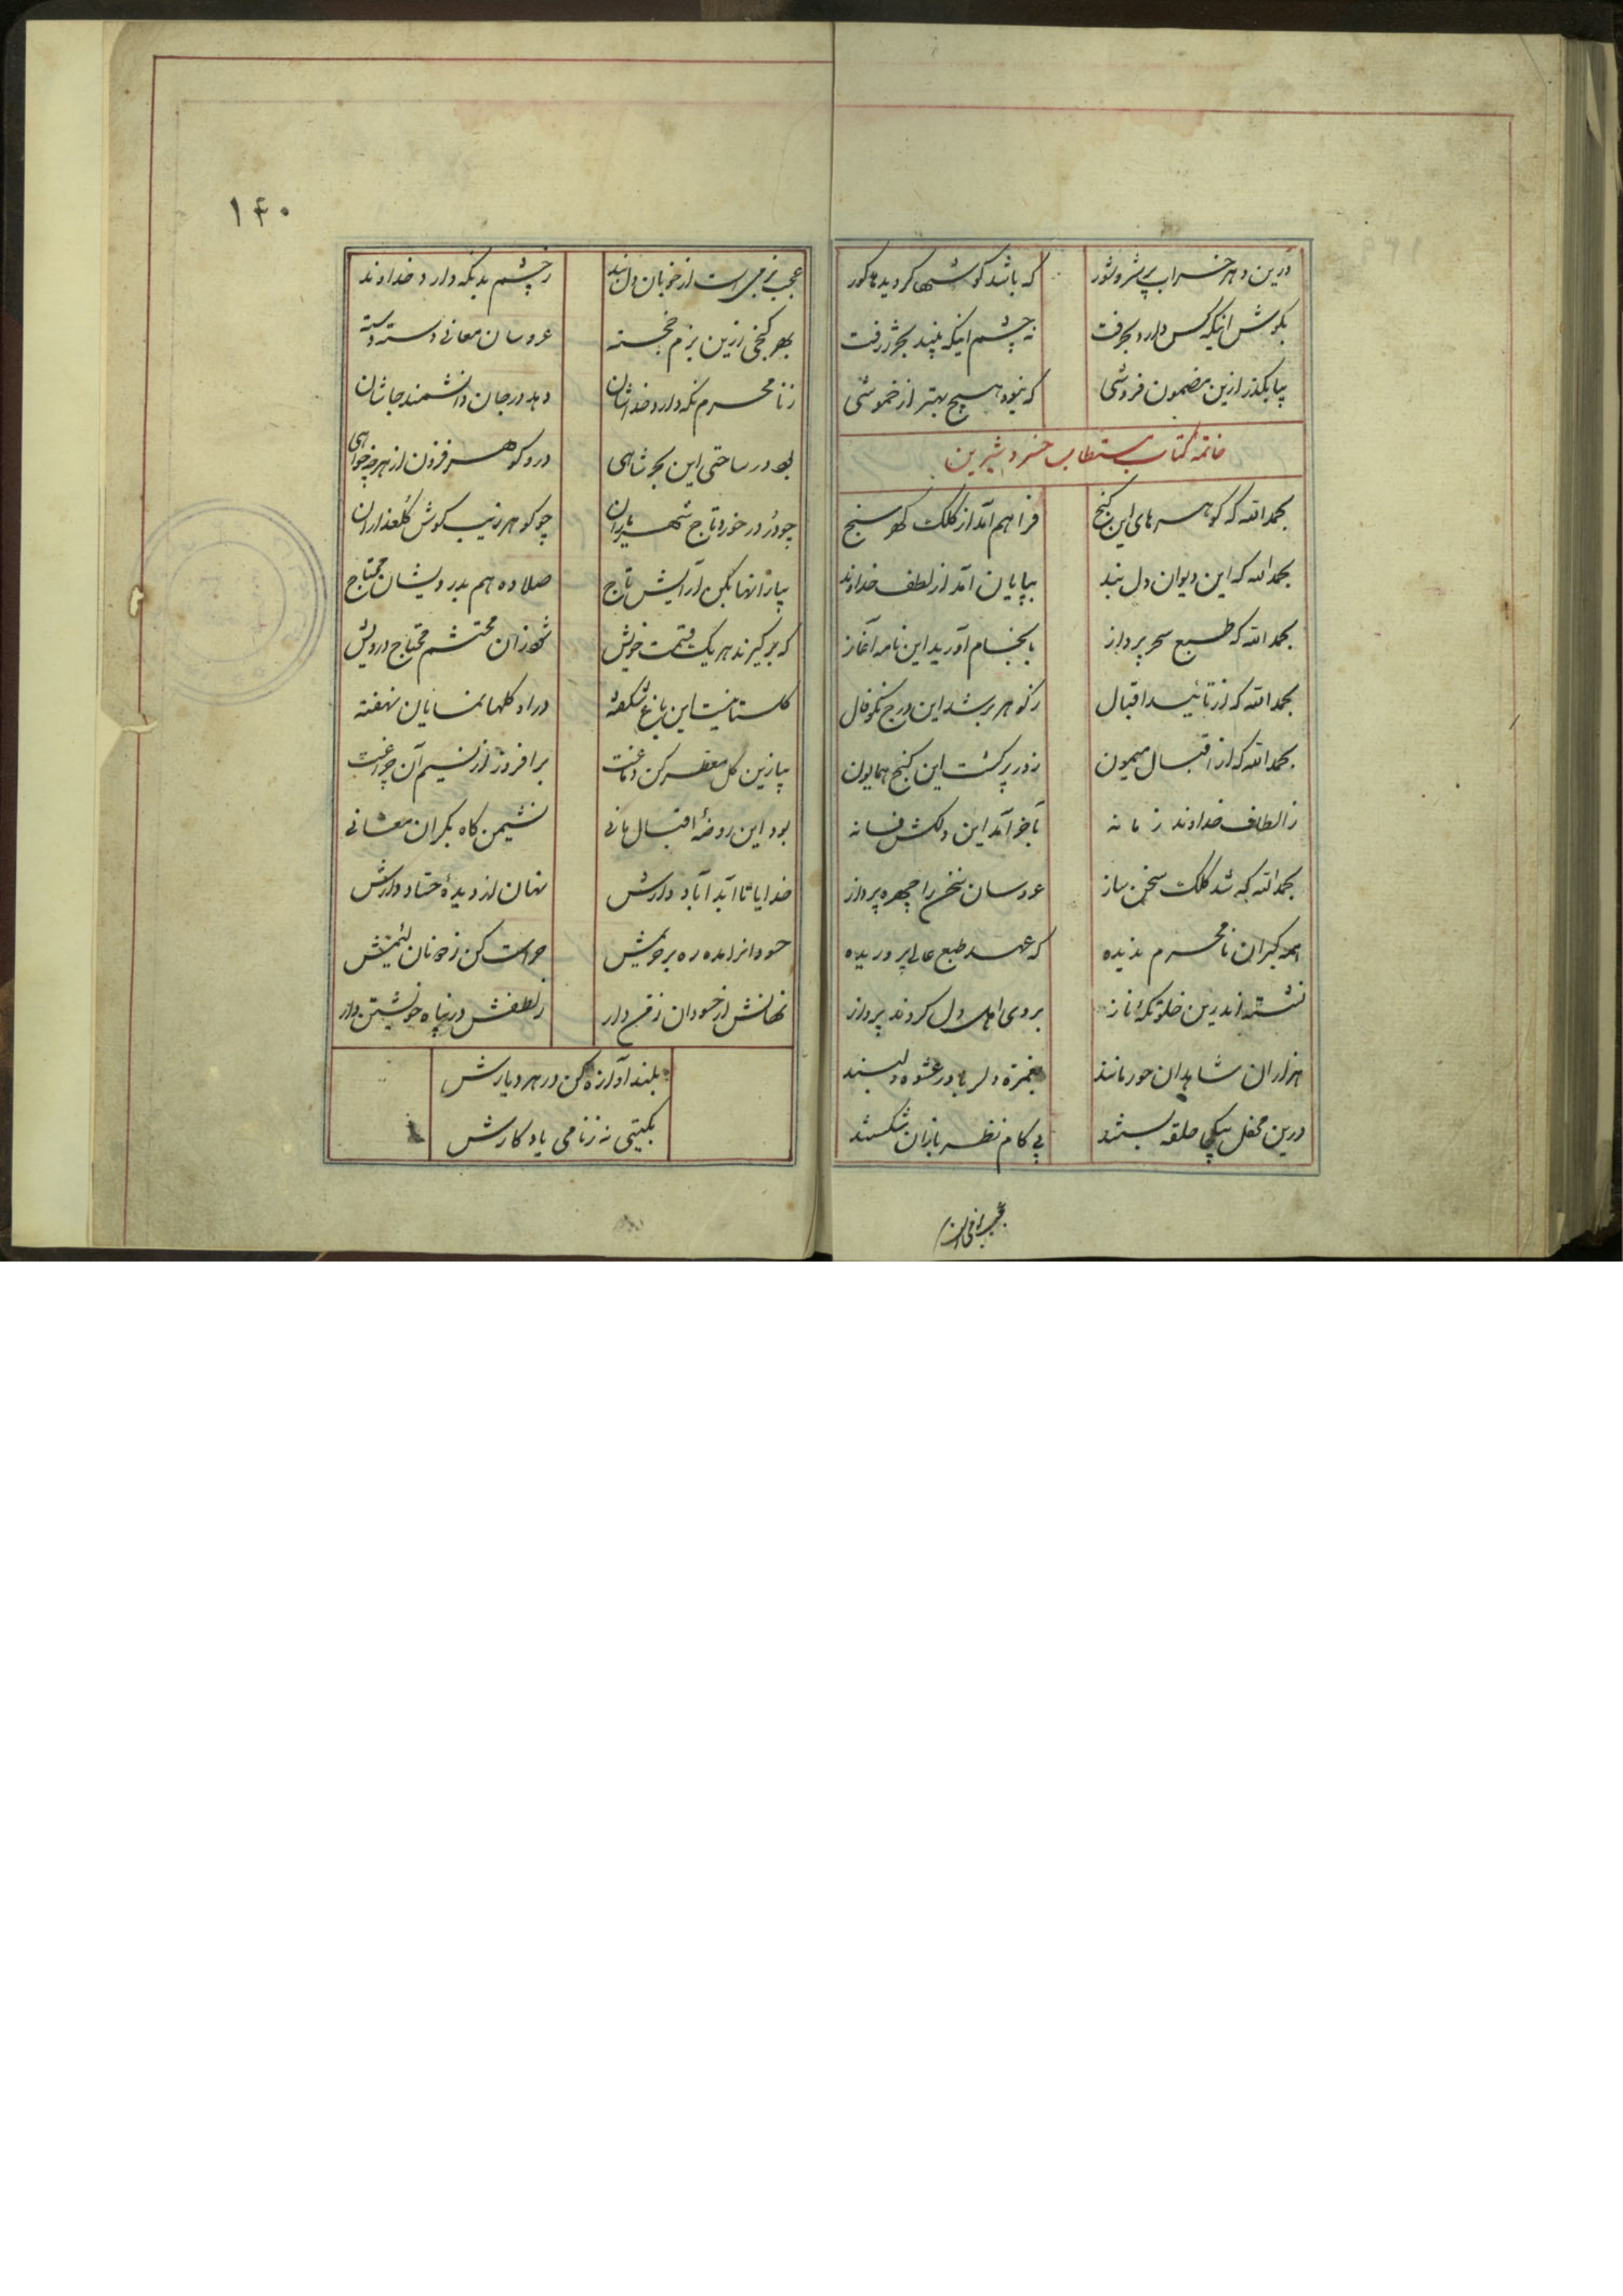 درین دهر خراب پر شر و شور که باشد گوشها کر دیدها کور
بگوش اینکه کس دارد بحرفت نه چشم اینکه بیند بحر ژرفت
بیا بگذر ازین مضمون فروشی که نبود هیچ بهتر از خموشی
خاتمه کتاب مستطاب خسرو شیرین
بحمدالله که گوهرهای این گنج فراهم آمد از کلک گهر سنج
بحمدالله که این دیوان دل بند بپایان آمد از لطف خداوند
بحمدالله که طبع سحر پرداز بانجام آورید این نامه آغاز
بحمدالله که از تائید اقبال ز گوهر پر شد این درج نکو فال
بحمدالله که از اقبال میمون ز در پر گشت این گنج همایون
ز الطاف خداوند زمانه بآخر آمد این دلکش فسانه
بحمدالله که شد کلک سخن ساز عروسان سخن را چهره پرداز
همه بکران نامحرم ندیده که عهد طبع عالی پروریده
نشستند اندرین خلوتگه ناز بروی اهل دل کردند پرداز
هزاران شاهدان حور مانند بغمزه دلربا در عشوه دلبند
درین محفل بیکجا حلقه بستند پی کام نظربازان شکستند
عجب بزمی است از خوبان
۱۴۰
عجب بزمی است از خوبان دل بند ز چشم بد نگه دارد خداوند
بهر کنجی ازین بزم خجسته عروسان معانی دسته دسته
ز نامحرم نگه دارد خداشان دهد در جان دانشمند جاشان
بود در ساحتی این بحر شاهی درو گوهر فزون از هر چه خواهی
چو در در خورد تاج شهریاران چو گوهر زیب گوش گلعذاران
بیا ز آنها بکن آرایش تاج صلا ده هم بدرویشان محتاج
که برگیرند هر یک قسمت خویش شه زان محتشم محتاج درویش
گلستانیست این باغ شکفته در او گلها نمایان نهفته
بیا زین گل معطر کن دماغت برافروز از نسیم آن چراغت
بود این روضه اقبال مانی نشیمن گاه بکران معانی
خدایا تا ابد آباد دارش نهان از دیده حساد دارش
حسودانرا مده ره بر حریمش حراست کن ز دونان لئیمش
نهانش از حسودان زمن دار ز لطفش در پناه خویشتن دار
بلند آوازه کن در هر دیارش
بگیتی نه ز نامی یادگارش